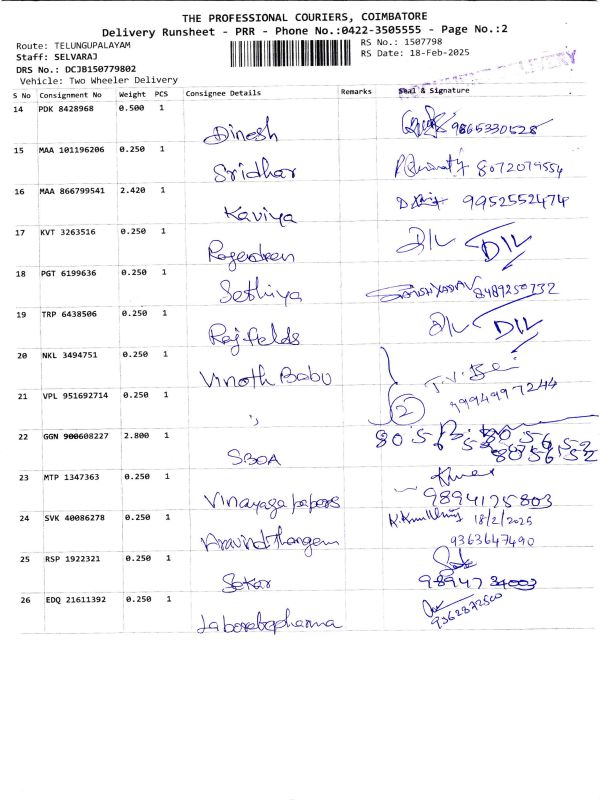 THE PROFESSIONAL COURIERS, COIMBATORE
Delivery Runsheet - PRR - Phone No.:0422-3505555 - Page No.:2
Route: TELUNGUPALAYAM
RS No.: 1507798
Staff: SELVARAJ
RS Date: 18-Feb-2025
DRS No.: DCJB150779802
DELIVERY
Vehicle: Two Wheeler Delivery
S No Consignment No Weight PCS Consignee Details Remarks Seal & Signature
14 PDK 8428968 0.500 1
Dinesh 9865330528
15 MAA 101196206 0.250 1
Sridhar 8072079554
16 MAA 866799541 2.420 1
Kaviya 9952552474
17 KVT 3263516 0.250 1
D/L D/L
18 PGT 6199636 0.250 1
Sethiya 8489250732
19 TRP 6438506 0.250 1
Rajfelds D/L D/L
20 NKL 3494751 0.250 1
Vinoth Babu
21 VPL 951692714 0.250 1
2 9994997244
22 GGN 900608227 2.800 1
SBOA
23 MTP 1347363 0.250 1
Vinayaga papers 9894125803
24 SVK 40086278 0.250 1
18/2/2025
9363647490
25 RSP 1922321 0.250 1
Sekar
26 EDQ 21611392 0.250 1
9362872500